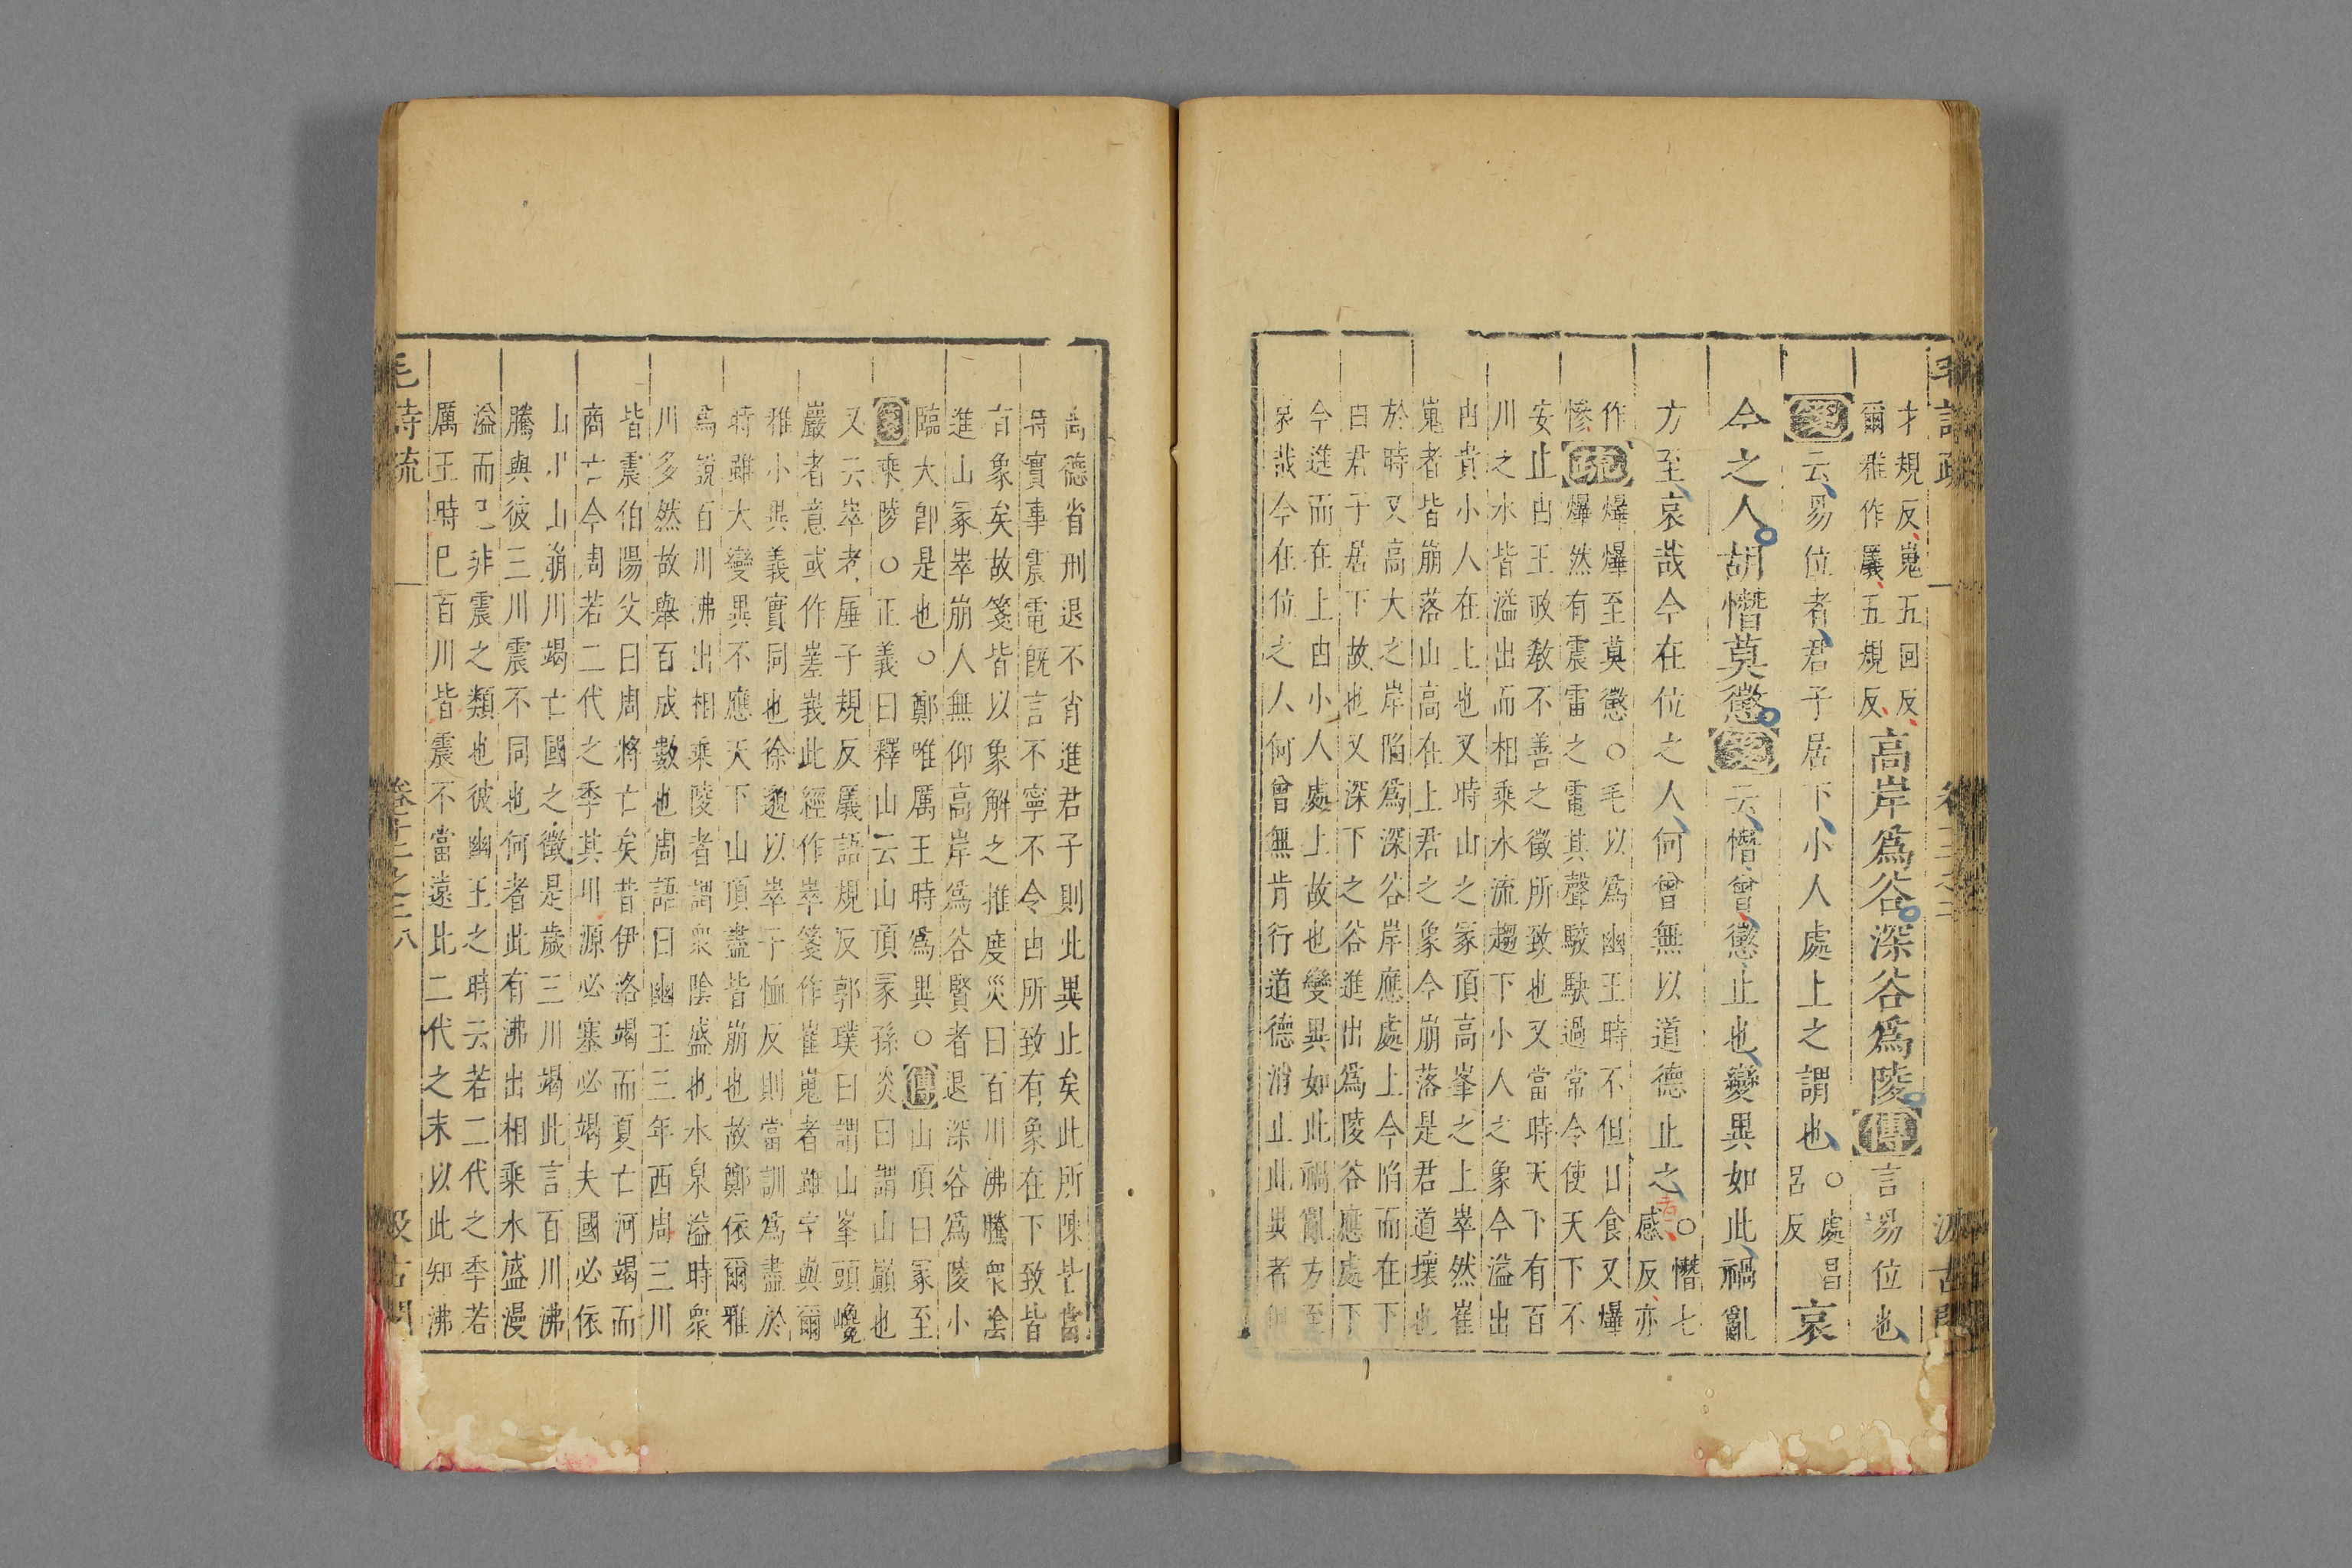 毛詩疏
卷十二之二
汲古閣
才規反嵬五回反
爾雅作㕒五規反
高岸爲谷深谷爲陵傳言易位也
箋云易位者君子居下小人處上之謂也
○處昌
呂反
哀
今之人胡憯莫懲箋云憯曾懲止也變異如此禍亂
方至哀哉今在位之人何曾無以道德止之
○憯七
感反亦
作
慘
疏
爗爗至莫懲○毛以爲幽王時不但日食又爗
爗然有震雷之電其聲駿駃過常令使天下不
安止由王政敎不善之徵所致也又當時天下有百
川之水皆溢出而相乘水流趨下小人之象今溢出
由貴小人在上也又時山之冢頂高峯之上崒然崔
嵬者皆崩落山高在上君之象今崩落是君道壞也
於時又高大之岸陷爲深谷岸應處上今陷而在下
由君子居下故也又深下之谷進出爲陵谷應處下
今進而在上由小人處上故也變異如此禍亂方至
哀哉今在位之人何曾無肯行道德消止此異者
德省刑退不肖進君子則此異止矣此所陳皆當
時實事震電旣言不寧不令由所致有象在下致皆
有象矣故箋皆以象解之推度災曰百川沸騰衆陰
進山冢崒崩人無仰高岸爲谷賢者退深谷爲陵小
臨大卽是也○鄭唯厲王時爲異○傳山頂曰冢至
乘陵○正義曰釋山云山頂冢孫炎曰謂山巔也
又云崒者厜子規反㕒語規反郭璞曰謂山峯頭巉
巖者意或作嵳峩此經作崒箋作崔嵬者雖字與爾
雅小異義實同也徐邈以崒子恤反則當訓爲盡於
時雖大變異不應天下山頂盡皆崩也故鄭依爾雅
爲說百川沸出相乘陵者謂衆陰盛也水泉溢時衆
川多然故舉百成數也周語曰幽王三年西周三川
皆震伯陽父曰周將亡矣昔伊洛竭而夏亡河竭而
商亡今周若二代之季其川源必塞必竭夫國必依
山川山崩川竭亡國之徵是歲三川竭此言百川沸
騰與彼三川震不同也何者此有沸出相乘水盛漫
溢而已非震之類也彼幽王之時云若二代之季若
厲王時已百川皆震不當遠比二代之末以此知沸
毛詩疏
卷十二之二
八
汲古閣